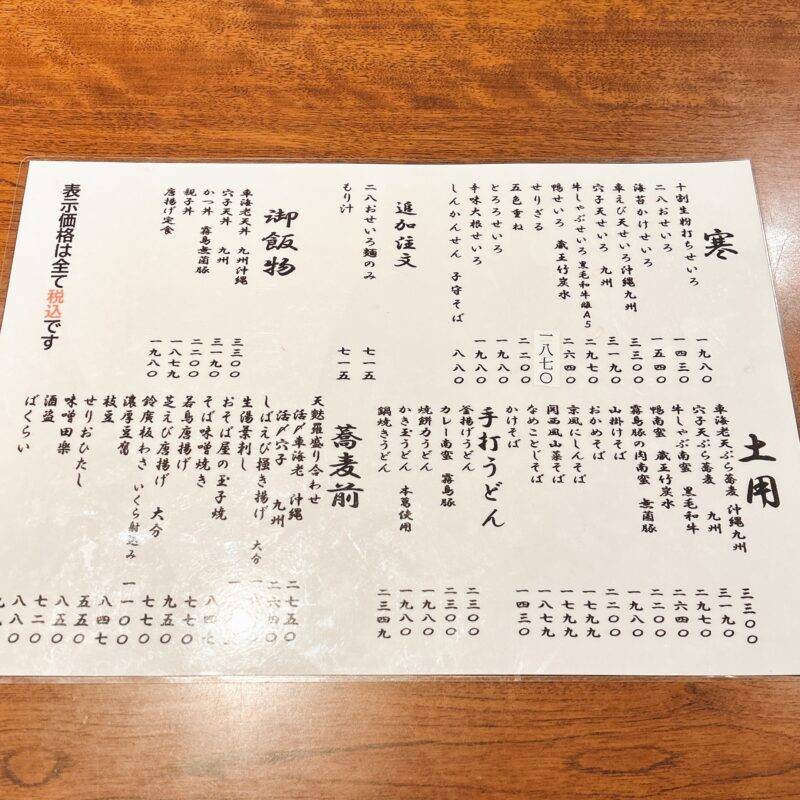 寒
十割生粉打ちせいろ 一九八〇
二八おせいろ 一四三〇
海苔かけせいろ 一五四〇
車えび天せいろ 沖縄九州 三三〇〇
穴子天せいろ 九州 三一九〇
牛しゃぶせいろ 黒毛和牛雌A5 二九七〇
鴨せいろ 蔵王竹炭水 二六四〇
せりざる 一八七〇
五色重ね 二二〇〇
とろろせいろ 一九八〇
辛味大根せいろ 一九八〇
しんかんせん 子守そば 八八〇
追加注文
二八おせいろ麺のみ 七一五
もり汁 七一五
御飯物
車海老天丼 九州沖縄 三三〇〇
穴子天丼 九州 三一九〇
かつ丼 霧島無菌豚 二二〇〇
親子丼 一八七九
唐揚げ定食 一九八〇
表示価格は全て税込です
土用
車海老天ぷら蕎麦 沖縄九州 三三〇〇
穴子天ぷら蕎麦 九州 三一九〇
牛しゃぶ南蛮 黒毛和牛 二九七〇
鴨南蛮 蔵王竹炭水 二六四〇
霧島豚の肉南蛮 無菌豚 二二〇〇
山掛けそば 一九八〇
おかめそば 二二〇〇
京風にしんそば 一七九九
関西風山菜そば 一七九九
なめことじそば 一八七九
かけそば 一四三〇
手打うどん
釜揚げうどん 二三〇〇
カレー南蛮 霧島豚
焼餅力うどん 一九八〇
かき玉うどん 本葛使用 一九八〇
鍋焼きうどん 二三四九
蕎麦前
天麩羅盛り合わせ 二七五〇
活〆車海老 沖縄 二六四〇
活〆穴子 九州
しばえび掻き揚げ 大分
生湯葉刺し
おそば屋の玉子焼
そば味噌焼き
若鳥唐揚げ
芝えび唐揚げ 大分
鈴廣板わさ
濃厚豆腐 いくら射込み
枝豆
せりおひたし
味噌田楽
酒盗
ばくらい